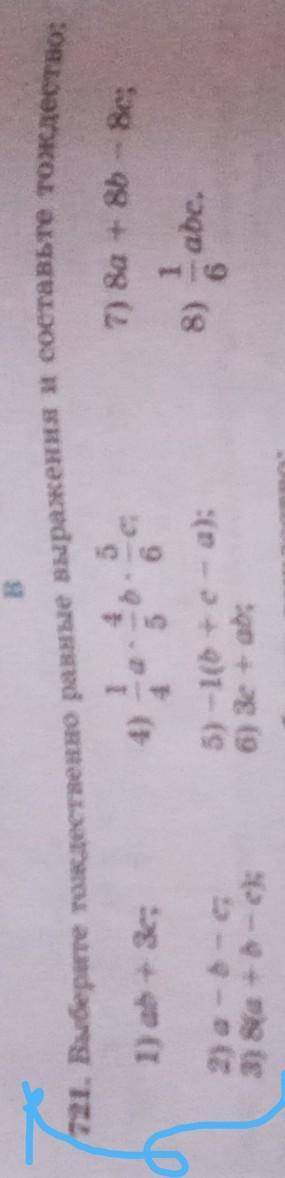 В
721. Выберите тождественно равные выражения и составьте тождество:
1) ab + 3c;
2) a − b − c;
3) 8(a + b − c);
4) 1/4 a · 4/5 b · 5/6 c;
5) −1(b + c − a);
6) 3c + ab;
7) 8a + 8b − 8c;
8) 1/6 abc.